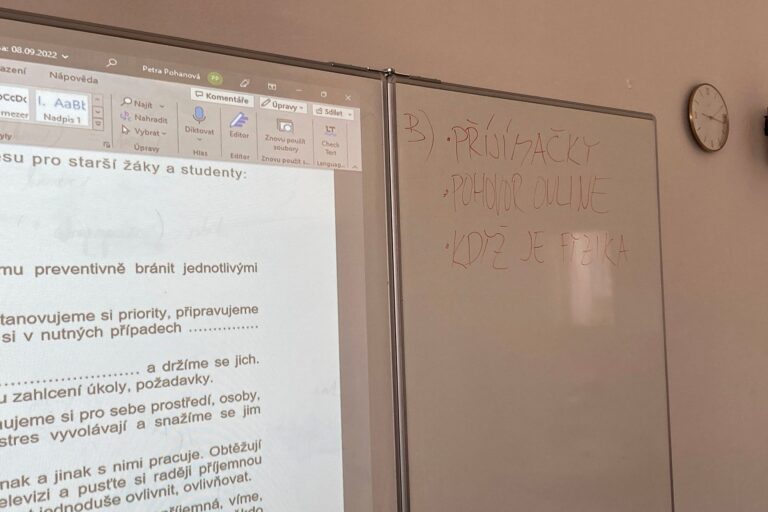 a: 08.09.2022
Petra Pohanová
PP
azení Nápověda
Komentáře Úpravy Sdílet
AaBb
Nadpis 1
Najít
Nahradit
Vybrat
Úpravy
Diktovat
Hlas
Editor
Editor
Znovu použít soubory
Znovu použít s...
LT
Check Text
Language...
esu pro starší žáky a studenty:
mu preventivně bránit jednotlivými
tanovujeme si priority, připravujeme
si v nutných případech ……………
a držíme se jich.
u zahlcení úkoly, požadavky.
ujeme si pro sebe prostředí, osoby,
stres vyvolávají a snažíme se jim
nak a jinak s nimi pracuje. Obtěžují
elevizi a pusťte si raději příjemnou
jednoduše ovlivnit, ovlivňovat.
příjemná, víme,
B) • PŘIJÍMAČKY
• POHOVOR ONLINE
• KDYŽ JE FYZIKA